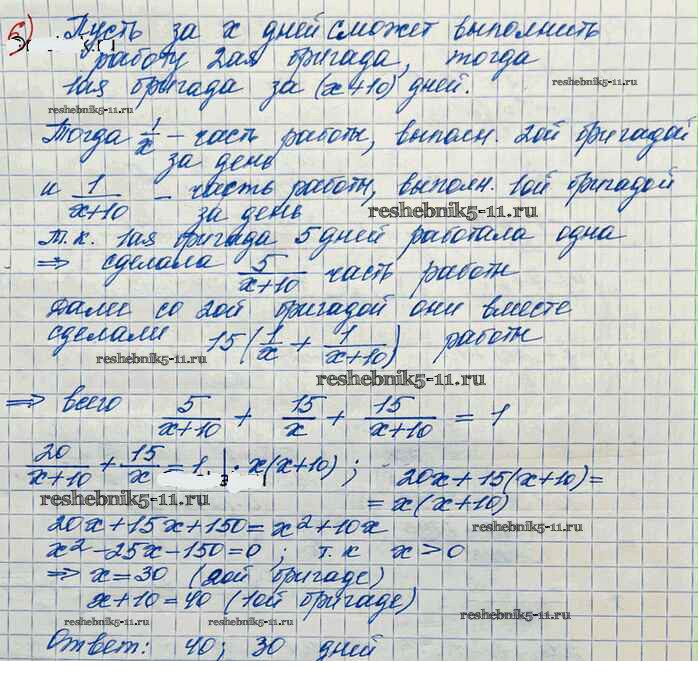 5) Пусть за x дней сможет выполнить
работу 2ая бригада, тогда
1ая бригада за (x+10) дней.
reshebnik5-11.ru
reshebnik5-11.ru
Тогда 1/x – часть работы, выполн. 2ой бригадой
за день
и 1/(x+10) – часть работы, выполн. 1ой бригадой
за день reshebnik5-11.ru
Т.к. 1ая бригада 5 дней работала одна
⇒ сделала 5/(x+10) часть работы
Далее со 2ой бригадой они вместе
сделали 15(1/x + 1/(x+10)) работы
reshebnik5-11.ru
reshebnik5-11.ru
⇒ всего 5/(x+10) + 15/x + 15/(x+10) = 1
20/(x+10) + 15/x = 1 | · x(x+10) ; 20x+15(x+10)=
= x(x+10)
reshebnik5-11.ru
reshebnik5-11.ru
20x+15x+150=x²+10x
x²-25x-150=0 ; т.к x>0
⇒ x=30 (2ой бригаде)
x+10=40 (1ой бригаде)
reshebnik5-11.ru
reshebnik5-11.ru
reshebnik5-11.ru
Ответ: 40; 30 дней